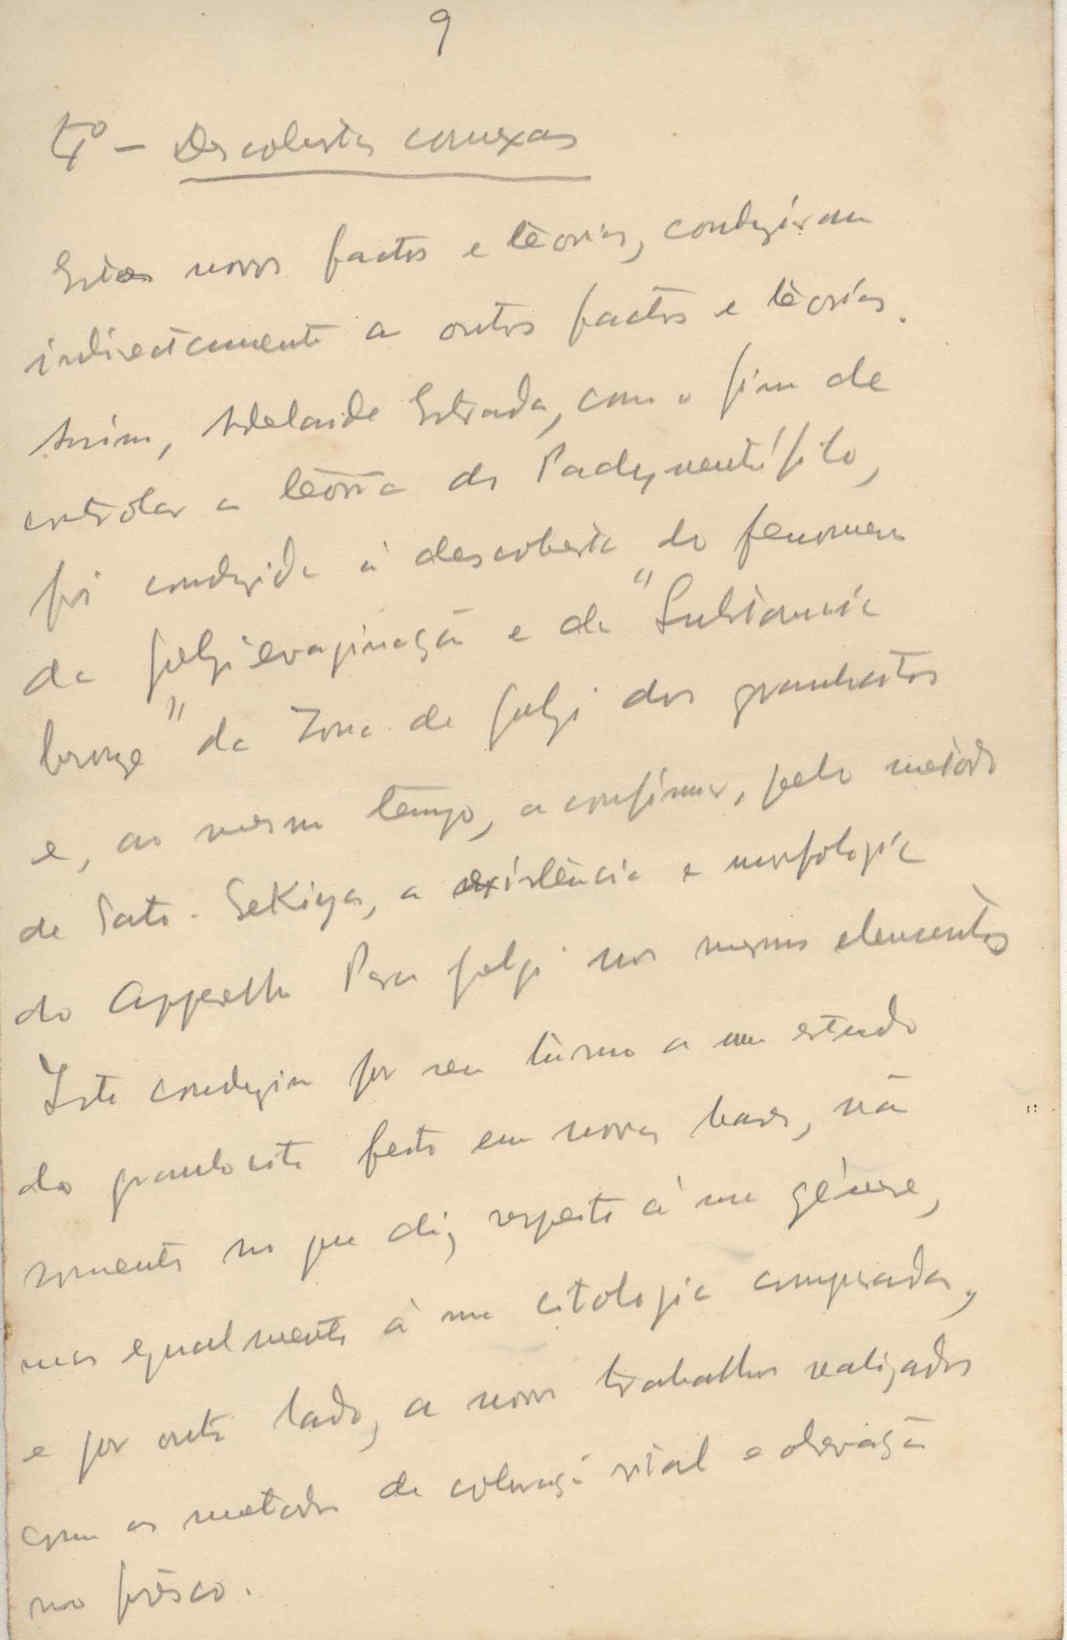 9
4º - Descobertas conexas
Estes novos factos e teorias, conduziram
indirectamente a outros factos e teorias.
Assim, Adelaide Estrada, com o fim de
controlar a teoria do
foi conduzida à descoberta do fenomeno
da golgievaginação e da "Substancia
bronze" da Zona de Golgi dos granulocitos
e, ao mesmo tempo, a confirmar, pelo método
de Sato-Sekiya, a existência e morfologia
do Apparelho Para Golgi nos mesmos elementos
Isto conduziu por seu turno a um estudo
do granulocito feito em novas bases, não
somente no que diz respeito à sua génese,
mas egualmente à sua citologia comparada,
e por outro lado, a novos trabalhos realizados
com os metodos de coloração vital e obervação
no frêsco.